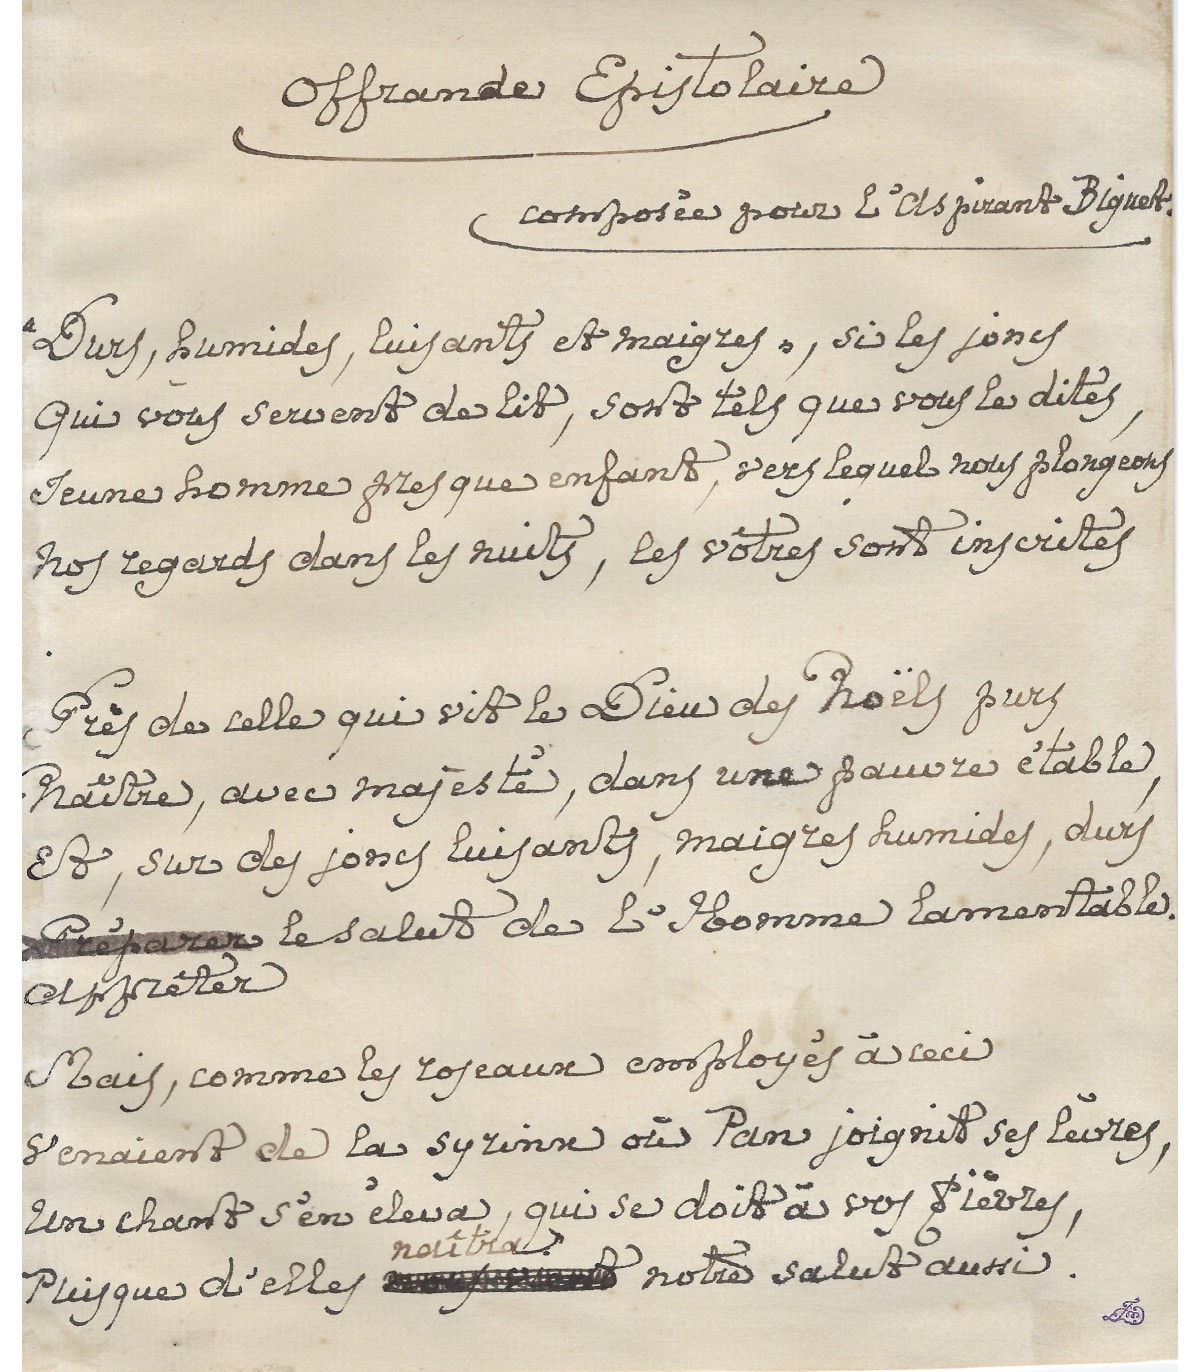 Offrande Epistolaire
composée pour l'Aspirant Biguet.
"Durs, humides, luisants et maigres", si les joncs
Qui vous servent de lit, sont tels que vous le dites,
Jeune homme presque enfant, vers lequel nous plongeons
Nos regards dans les nuits, les vôtres sont inscrites
Près de celle qui vit le Dieu des Noëls purs
Naître, avec majesté, dans une pauvre étable,
Et, sur des joncs luisants, maigres humides, durs
Préparer le salut de l'Homme lamentable.
Apprêter
Mais, comme les roseaux employés à ceci
Venaient de la syrinx où Pan joignit ses lèvres,
Un chant s'en éleva, qui se doit à vos fièvres,
naîtra
Puisque d'elles notre salut aussi.